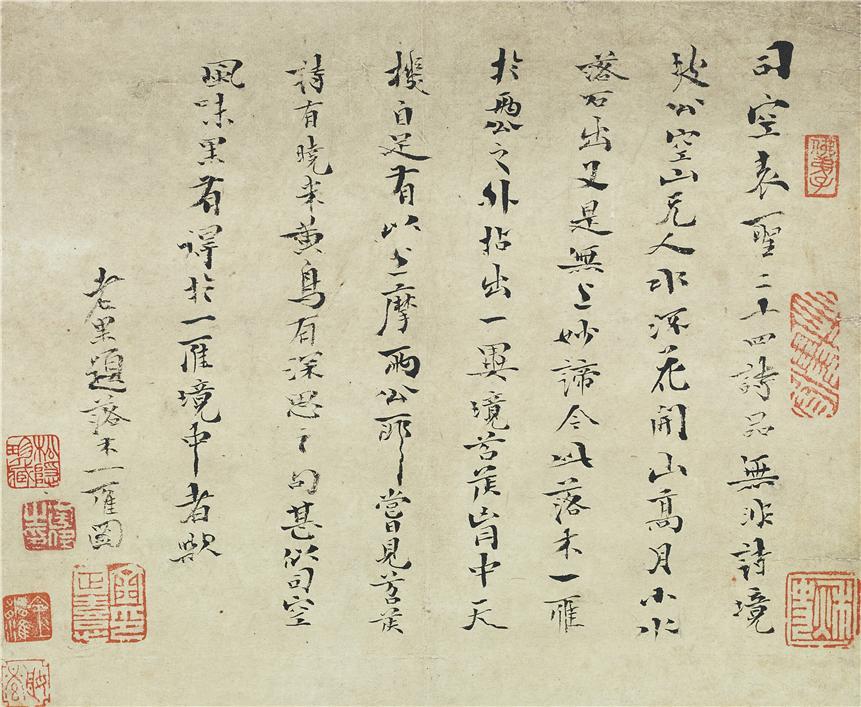 司空表聖二十四詩品無非詩境
坡公空山无人水流花開山高月小水
落石出又是無上妙諦今此落木一雁
於兩公之外拈出一異境苔矦胷中天
機自足有以上摩兩公耶嘗見苔矦
詩有曉來黃鳥有深思之句甚似司空
風味果有得於一雁境中者歟
老果題落木一雁圖
松隱珍藏